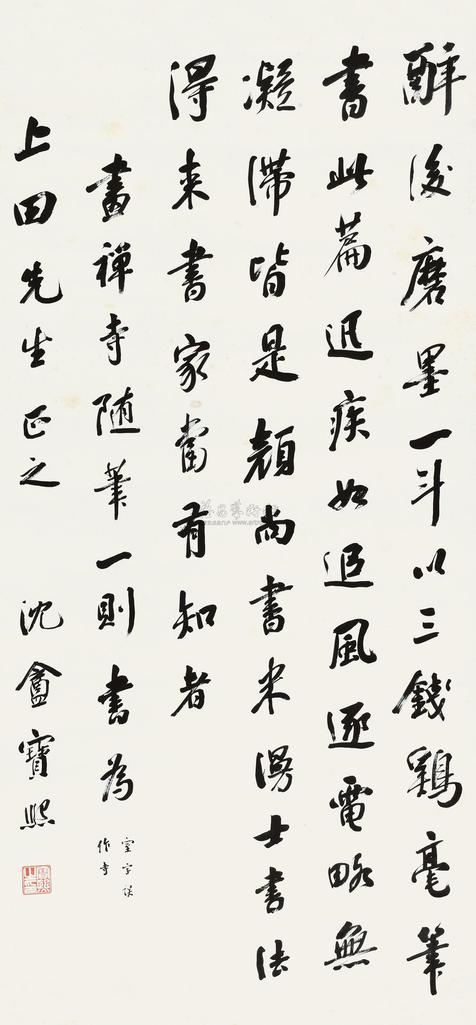 醉後磨墨一斗以三錢鷄毫筆
書此篇迅疾如追風逐電略無
凝滯皆是顔尚書米漫士書法
得来書家當有知者
畫禪寺随筆一則書為
室字误
作寺
上田先生正之
沈盦寳熙